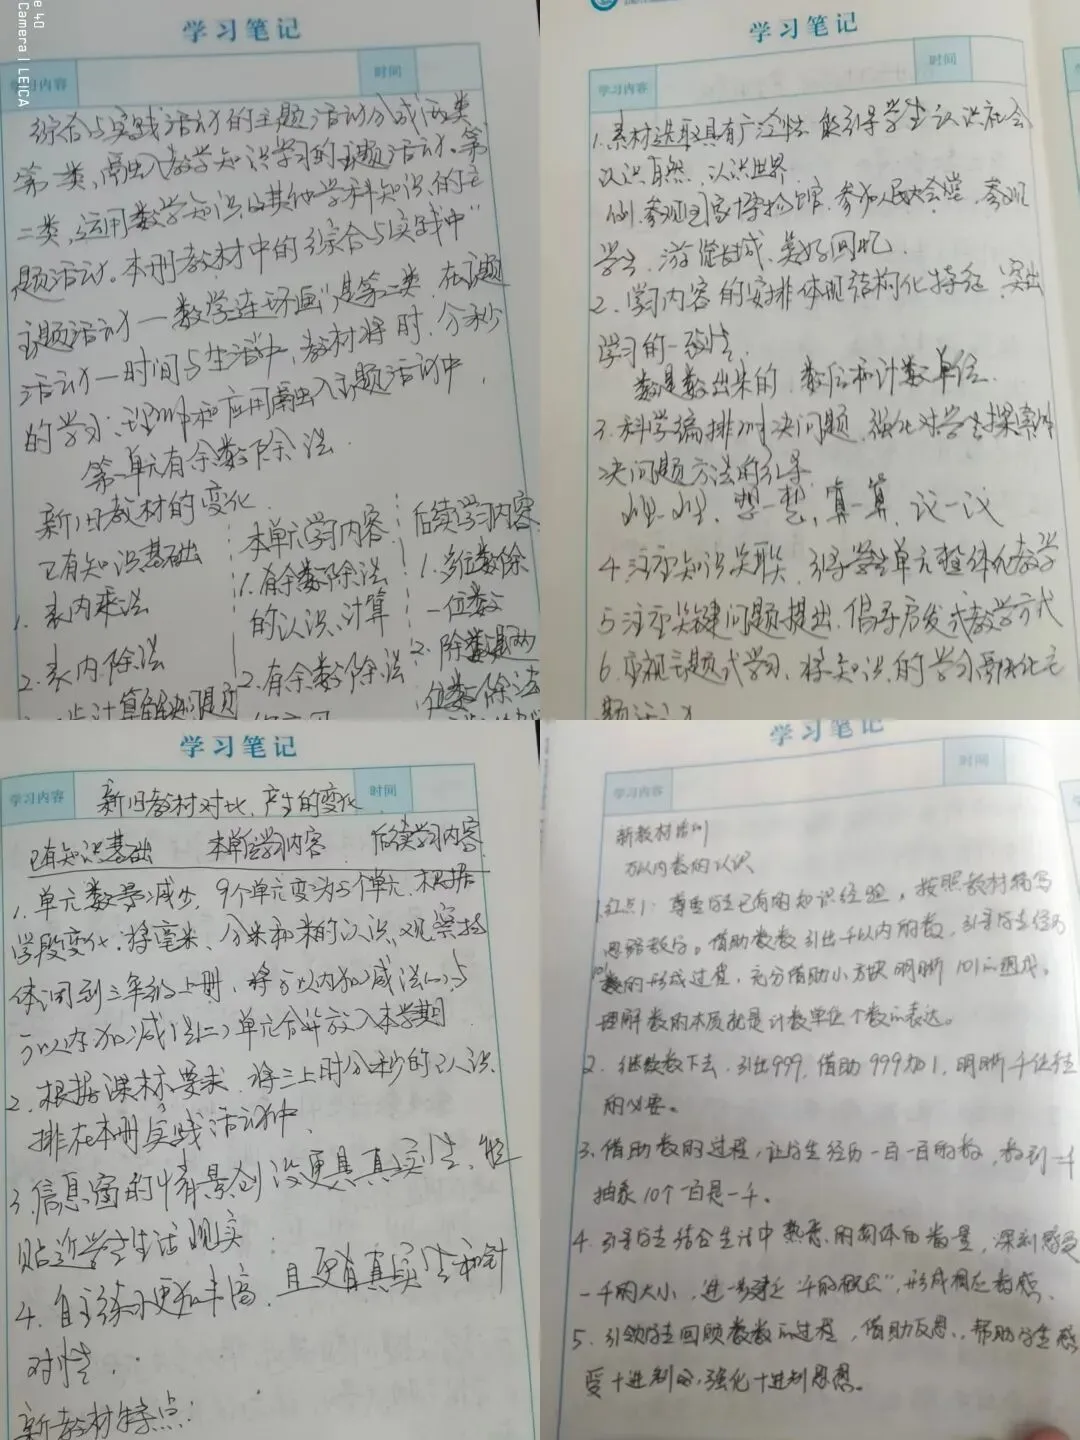 学习笔记
学习内容
时间
综合与实践活动的主题活动分成两类
第一类、融入数学知识学习的主题活动。第
二类,运用数学知识及其他学科知识的主
题活动。本册教材中的"综合与实践中"
主题活动一数学连环画"是第二类,在主题
活动一时间与生活中,教材将时、分、秒
的学习、理解和应用融入主题活动中,
第一单元有余数除法
新旧教材的变化
已有知识基础
1. 表内乘法
2. 表内除法
计算解决问题
本单元学习内容
1. 有余数除法
的认识、计算
2. 有余数除法
后续学习内容
1. 多位数除
一位数
2. 除数是两
位数除法
学习笔记
学习内容
时间
1. 素材选取具有广泛性 能引导学生认识社会
认识自然、认识世界.
例,参观国家博物馆、参加人民大会堂、参观
学生、游览长城、美好回忆.
2. 学习内容的安排体现结构化特征,突出
学习的一致性.
数是数出来的、数位和计数单位.
3. 科学编排解决问题,强化对学生探索解
决问题方法的引导.
想一想,算一算,议一议
4 注重知识关联,引导学生单元整体化教学
5 注重关键问题提出,倡导启发式教学方式
6. 重视主题式学习,将知识的学习融化主
题活动
学习笔记
学习内容
新旧教材对比,产生的变化
时间
已有知识基础 本单元学习内容 后续学习内容
1. 单元数量减少,9个单元变为5个单元、根据
学段变化,将毫米、分米和米的认识,观察物
体调到三年级上册,将万以内加减法(一)与
万以内加减法(二)单元合并放入本学期
2. 根据课标要求,将三上时分秒的认识
排在本册实践活动中.
3. 信息窗的情景创设更具真实性、能
贴近学生生活现实
4. 自主练习更加丰富,且更有真实性和针
对性.
新教材特点:
学习笔记
学习内容
时间
新教材培训
万以内数的认识
红点1:尊重学生已有的知识经验,按照教材编写
思路教学。借助数数引出千以内的数,引导学生经历
数的形成过程,充分借助小方块明晰101的组成。
理解数的本质就是计数单位个数的表达。
2. 继续数下去,引出999,借助999加1,明晰千位产生
的必要。
3. 借助数的过程,让学生经历一百一百的数,数到一千
抽象10个一百是一千。
4. 引导学生结合生活中熟悉的物体的数量,深刻感受
一千的大小,进一步建立"千的概念",形成相应数感.
5. 引领学生回顾数数的过程,借助反思,帮助学生感
受十进制,强化十进制思想。